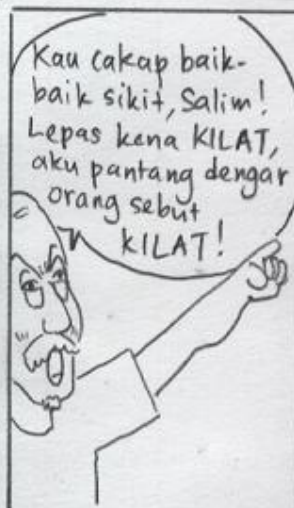 Kau cakap baik-
baik sikit, Salim!
Lepas kena KILAT,
aku pantang dengar
orang sebut
KILAT!